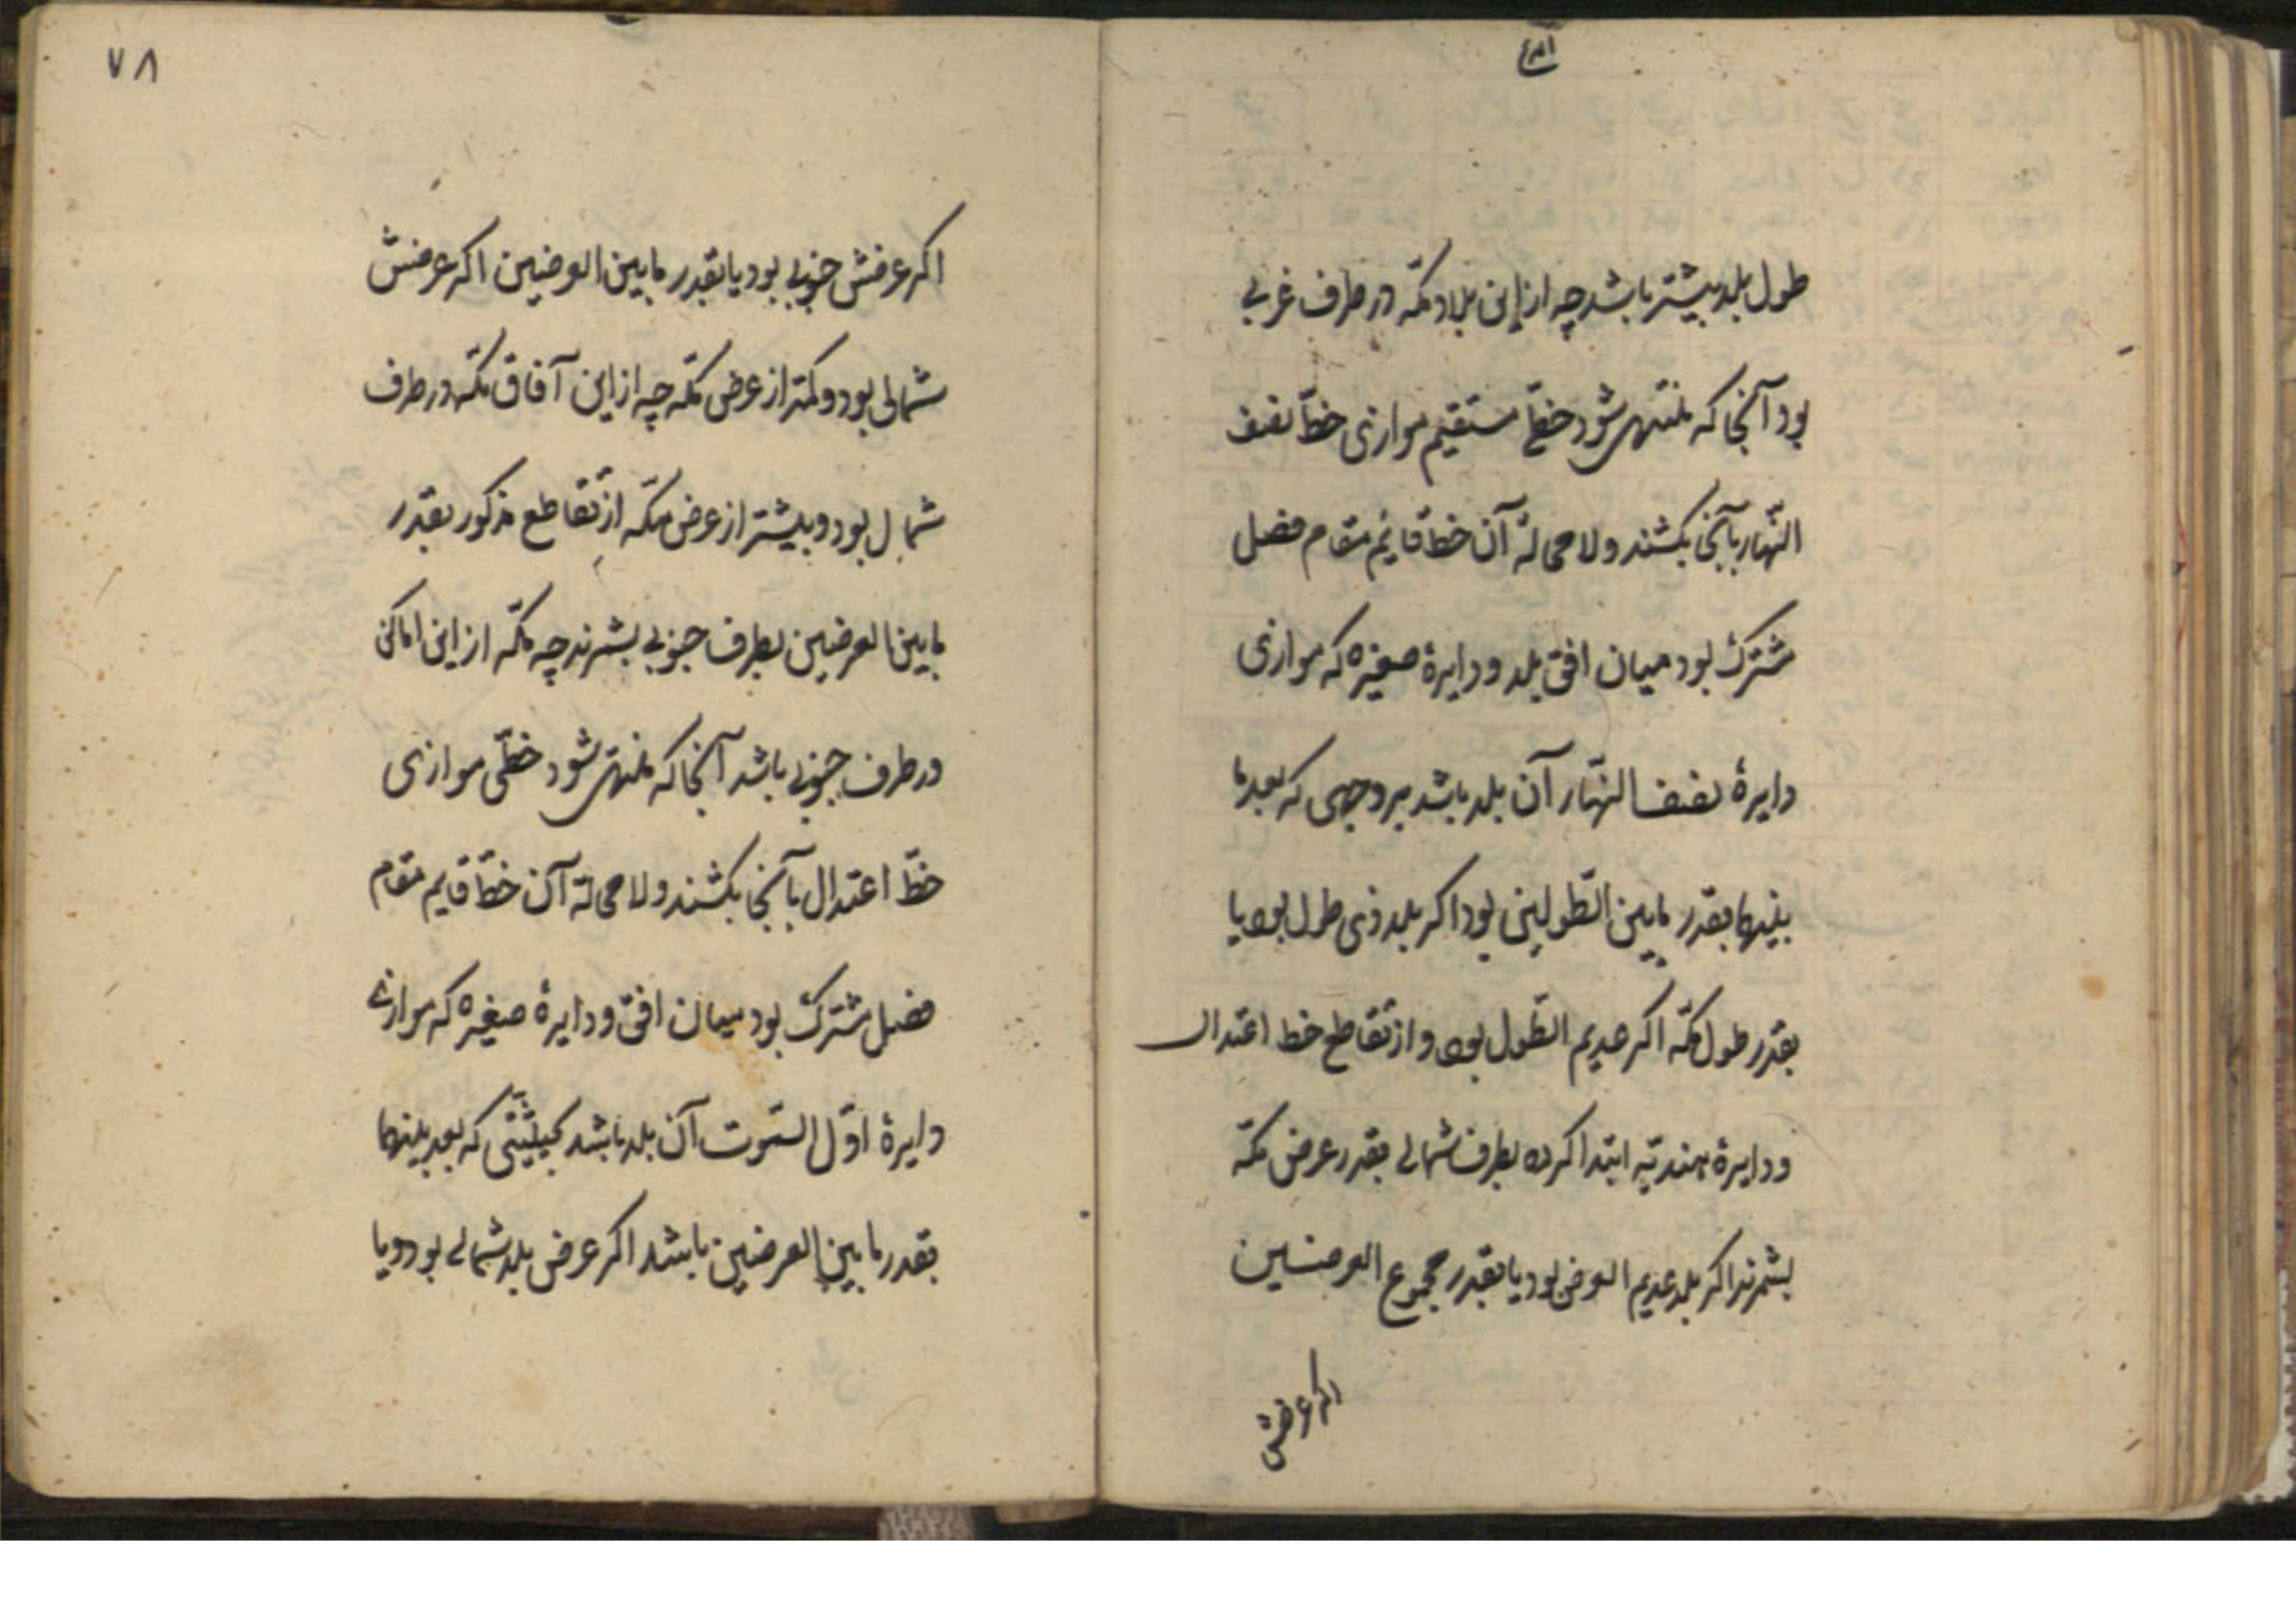 طول بلد بیشتر باشد چه از این بلاد مکّه در طرف غربی
بود آنجا که منتهی شود خطّی مستقیم موازی خطّ نصف
النّهار بآنجا بکشند و لا محالة آن خط قایم مقام فصل
مشترک بود میان افق بلد و دایرهٔ صغیره که موازی
دایرهٔ نصف النهّار آن بلد باشد بر وجهی که بعد ما
بینهما بقدر ما بین الطّولین بود اکر بلد ذی طول بود یا
بقدر طول مکّه اکر عدیم الطّول بود و از تقاطع خط اعتدال
و دایرهٔ هندیّه ابتدا کرده بطرف شمالی بقدر عرض مکّه
بشمرند اکر بلد عدیم العرض بود یا بقدر مجموع العرضین
اکر عرضش
۷۸
اکر عرضش جنوبی بود یا بقدر ما بین العرضین اکر عرضش
شمالی بود و کمتر از عرض مکّه چه از این آفاق مکّه در طرف
شمال بود و بیشتر از عرض مکّه از تقاطع مذکور بقدر
ما بین العرضین بطرف جنوبی بشمرند چه مکّه از این اماکن
در طرف جنوبی باشد آنجا که منتهی شود خطّی موازی
خطّ اعتدال بآنجا بکشند و لا محالة آن خطّ قایم مقام
فصل مشترک بود میان افق و دایرهٔ صغیره که موازی
دایرهٔ اوّل السّموت آن بلد باشد بحیثیّتی که بعد بینهما
بقدر ما بین العرضین باشد اکر عرض بلد شمالی بود و یا